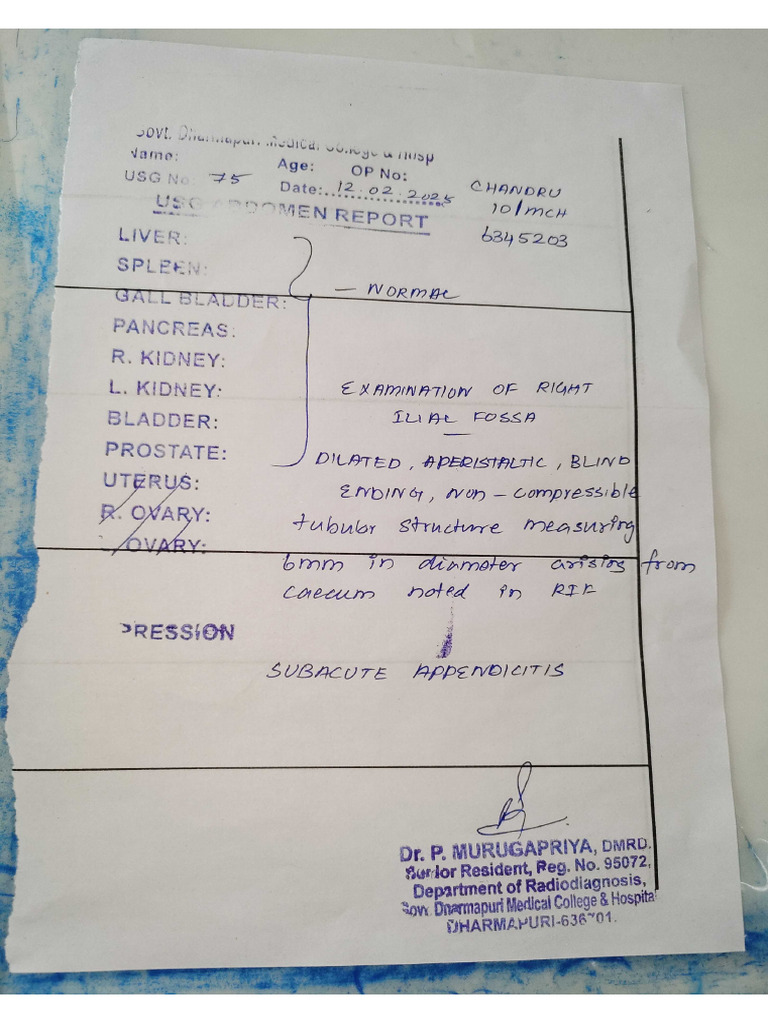 Govt. Dharmapuri Medical College & Hosp
Name: Age: OP No:
USG No: 75 Date:...12.02.2025
CHANDRU
10/MCH
6345203
USG ABDOMEN REPORT
LIVER:
SPLEEN:
GALL BLADDER: - NORMAL
PANCREAS:
R. KIDNEY:
L. KIDNEY: EXAMINATION OF RIGHT
BLADDER: ILIAC FOSSA
PROSTATE: DILATED, APERISTALTIC, BLIND
UTERUS: ENDING, NON - compressible
R. OVARY: tubular structure measuring
OVARY: 6mm in diameter arising from
caecum noted in RIF
PRESSION
SUBACUTE APPENDICITIS
Dr. P. MURUGAPRIYA, DMRD.
Senior Resident, Reg. No. 95072,
Department of Radiodiagnosis,
Govt. Dharmapuri Medical College & Hospital
DHARMAPURI-636701.